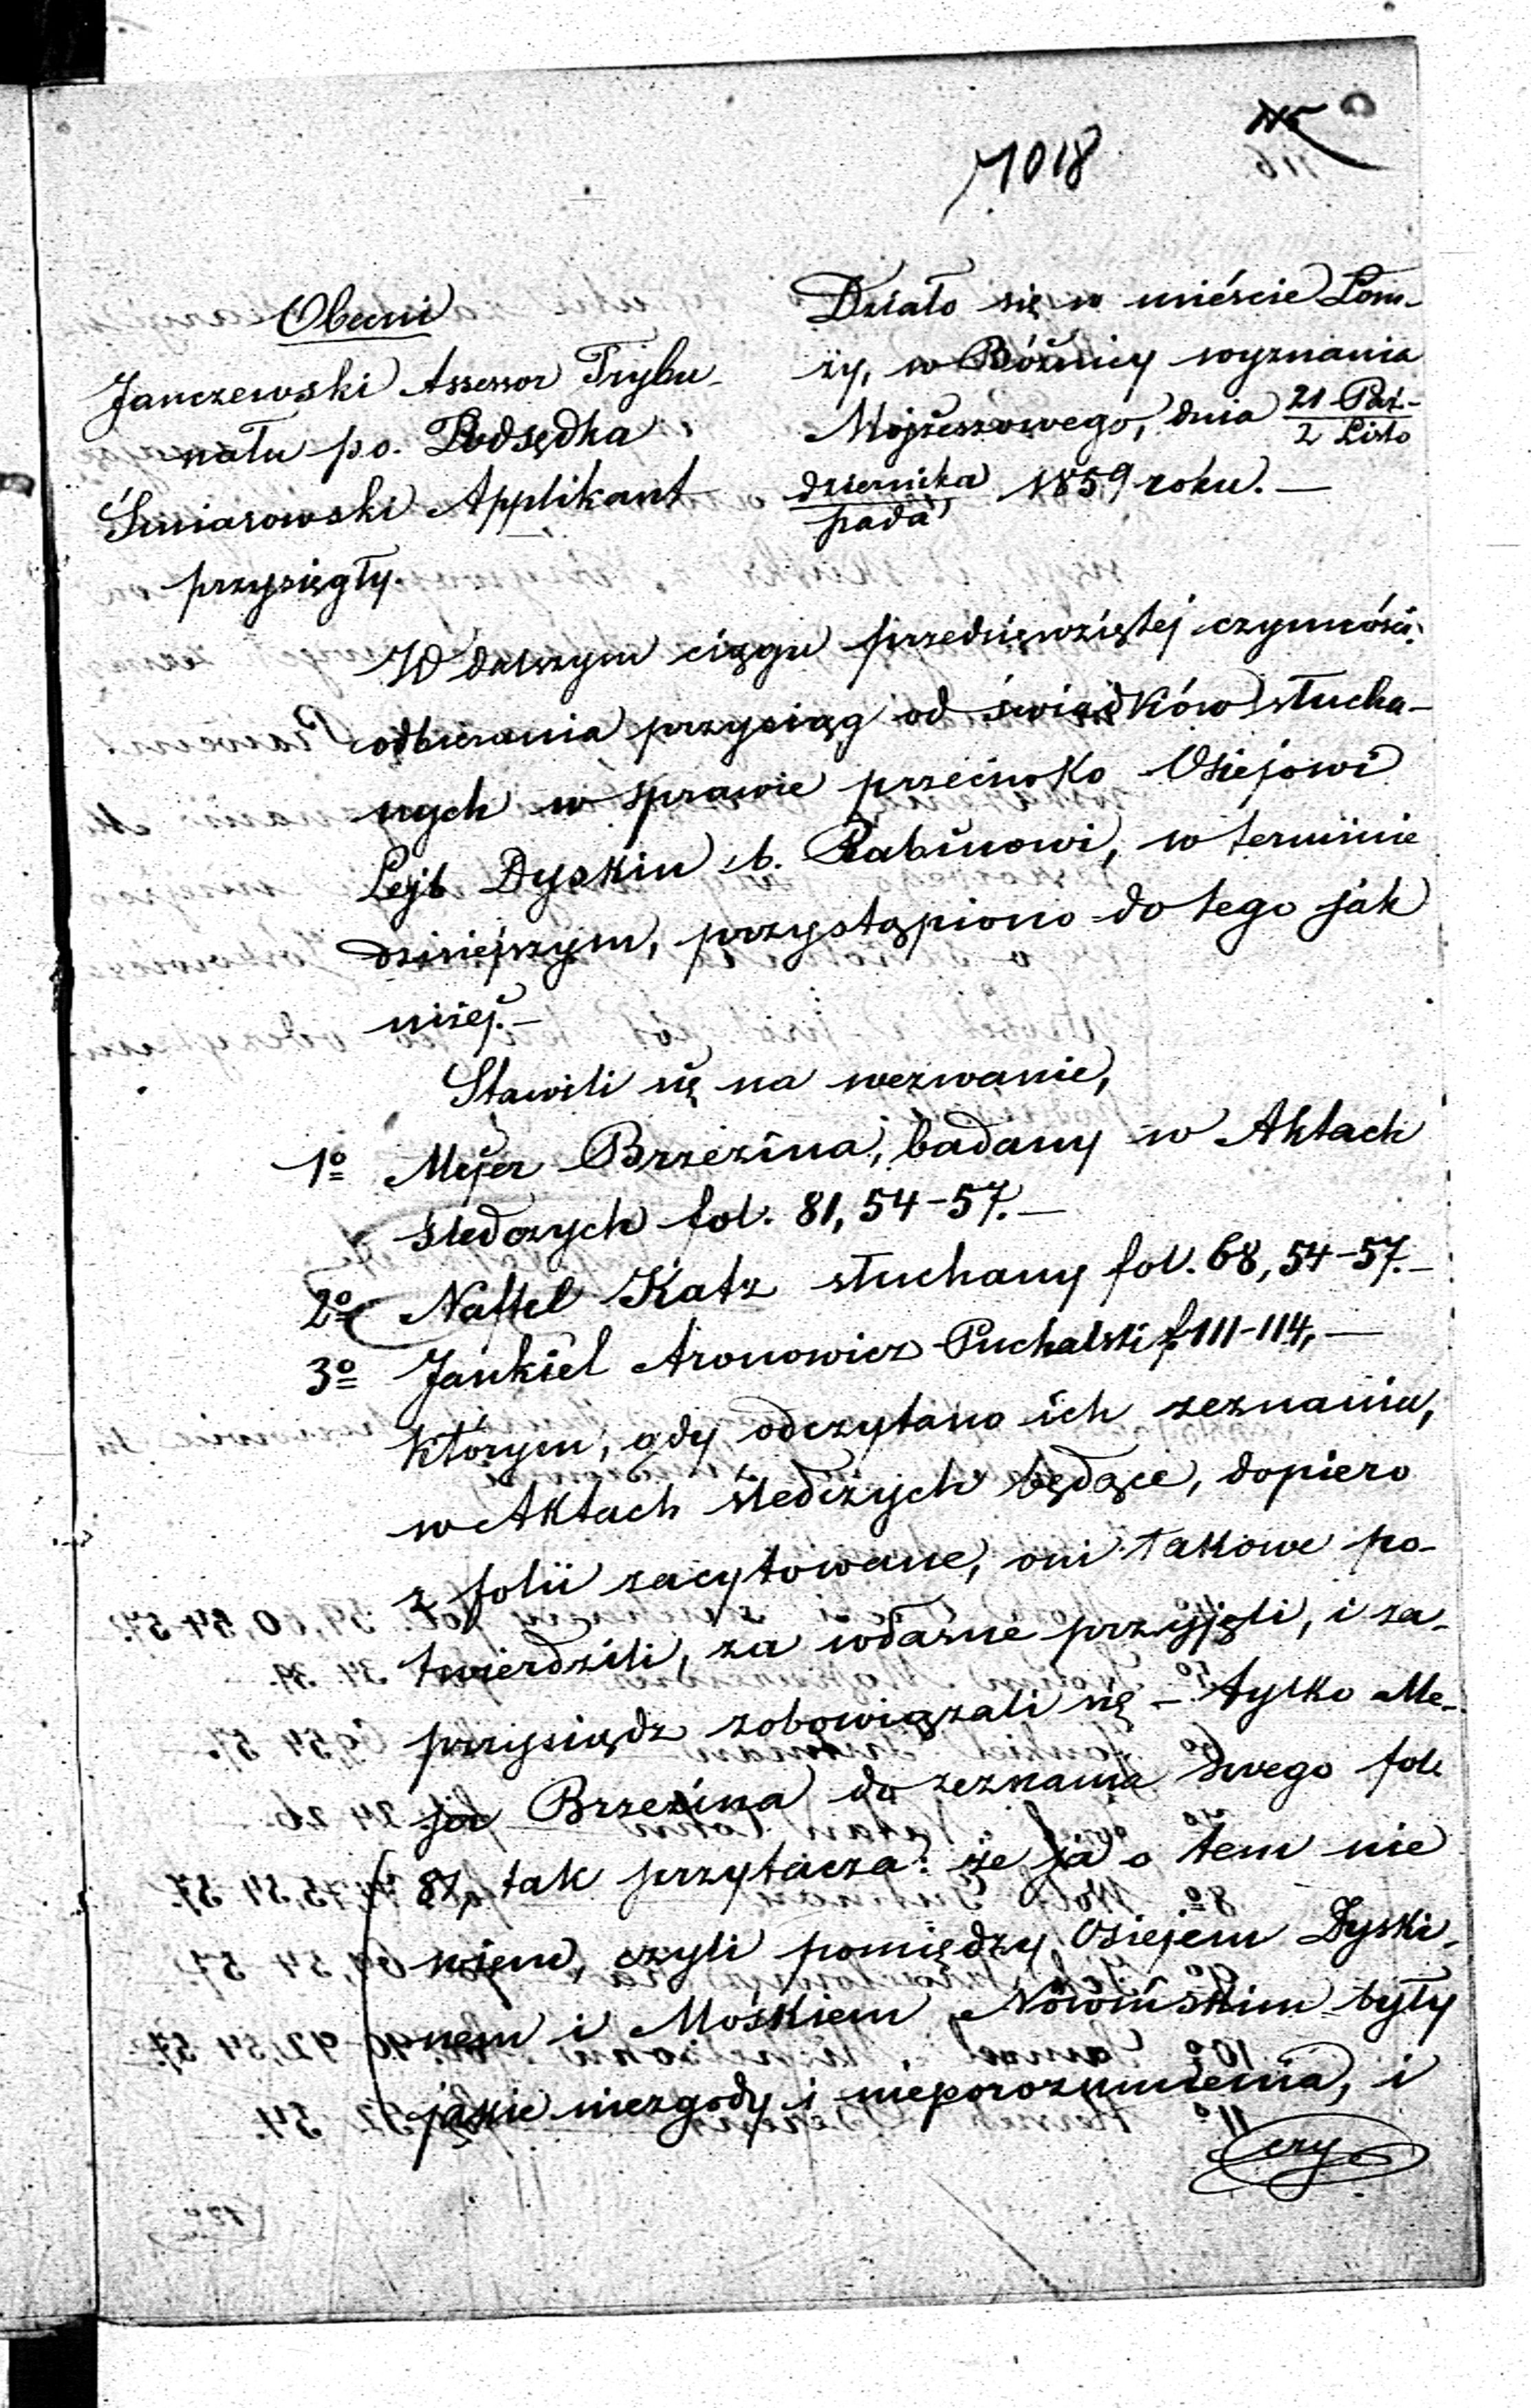 1018
Obecni
Janczewski Assessor Trybu-
nału p.o. Podsędka
Śmiarowski Applikant
przysięgły.
Działo się w mieście Łom-
ży, w Bóżnicy wyznania
Mojżeszowego, dnia 21 Paź-
2 Listo
dziernika 1859 roku. —
pada
W dalszym ciągu przedsięwziętej czynności
odbierania przysiąg od świadków słucha-
nych w sprawie przeciwko Osiejowi
Lejb Dyskin b. Rabinowi, w terminie
dzisiejszym, przystąpiono do tego jak
niżej. —
Stawili się na wezwanie,
1o Mejer Brzezina, badany w Aktach
śledczych fol. 81, 54-57. —
2o Naftel Katz słuchany fol. 68, 54-57. —
3o Jankiel Aronowicz Puchalski f. 111-114, —
którym, gdy odczytano ich zeznania,
w Aktach śledczych będące, dopiero
z folii zacytowane, oni takowe po-
twierdzili, za własne przyjęli, i za-
przysiądz zobowiązali się — tylko Me-
jer Brzezina do zeznania swego fol.
81, tak przytacza: że ja o tem nie
wiem, czyli pomiędzy Osiejem Dyski-
nem i Mośkiem Nowińskim były
jakie niezgody i nieporozumienia, i
czy